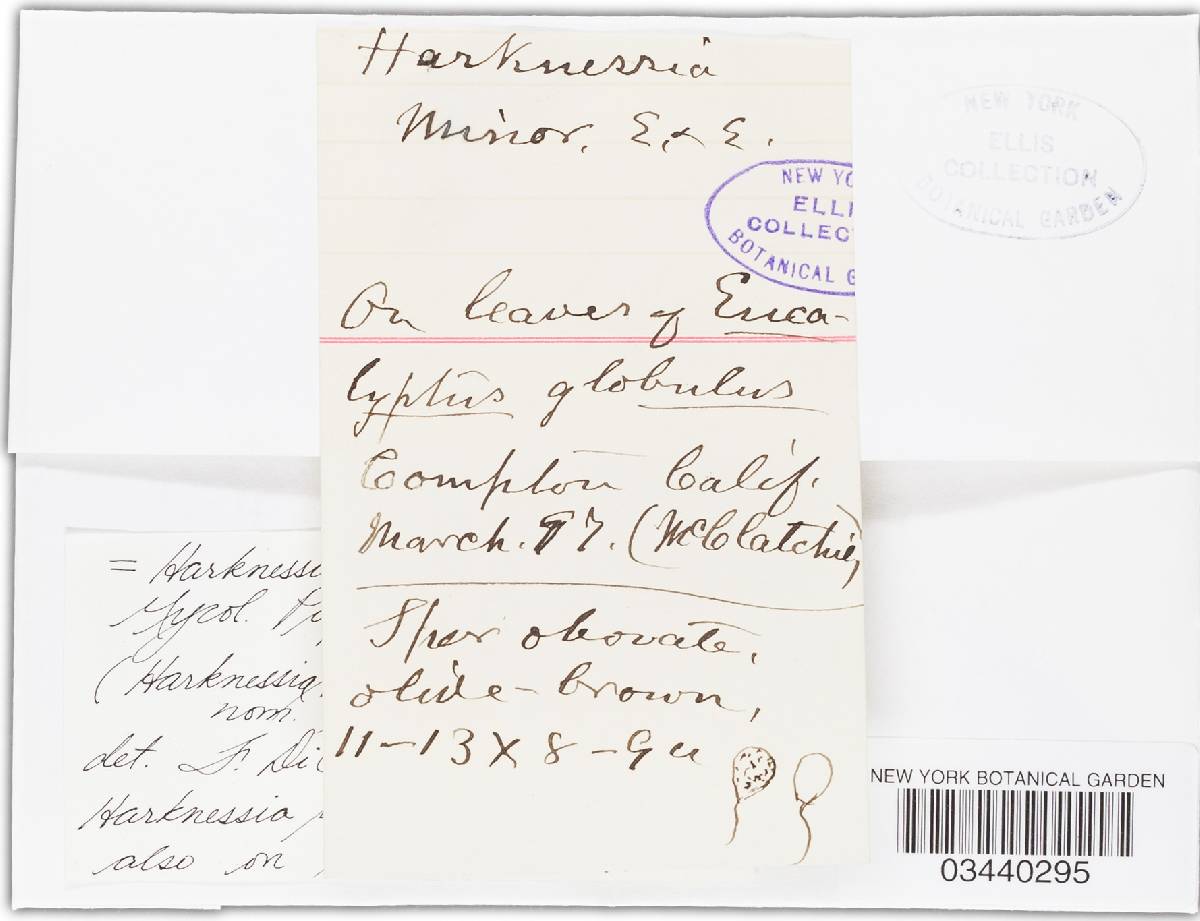 Harknessia
Minor, E. & E.
NEW YO
ELLI
COLLEC
BOTANICAL G
NEW YORK
ELLIS
COLLECTION
BOTANICAL GARDEN
On leaves of Euca-
lyptus globulus
Compton Calif.
March. 97. (McClatchie)
Spor obovate,
olive-brown,
11-13 X 8-9 u
= Harknessi
Mycol.
(Harknessia
nom.
det. F. Di
Harknessia
also on
NEW YORK BOTANICAL GARDEN
03440295